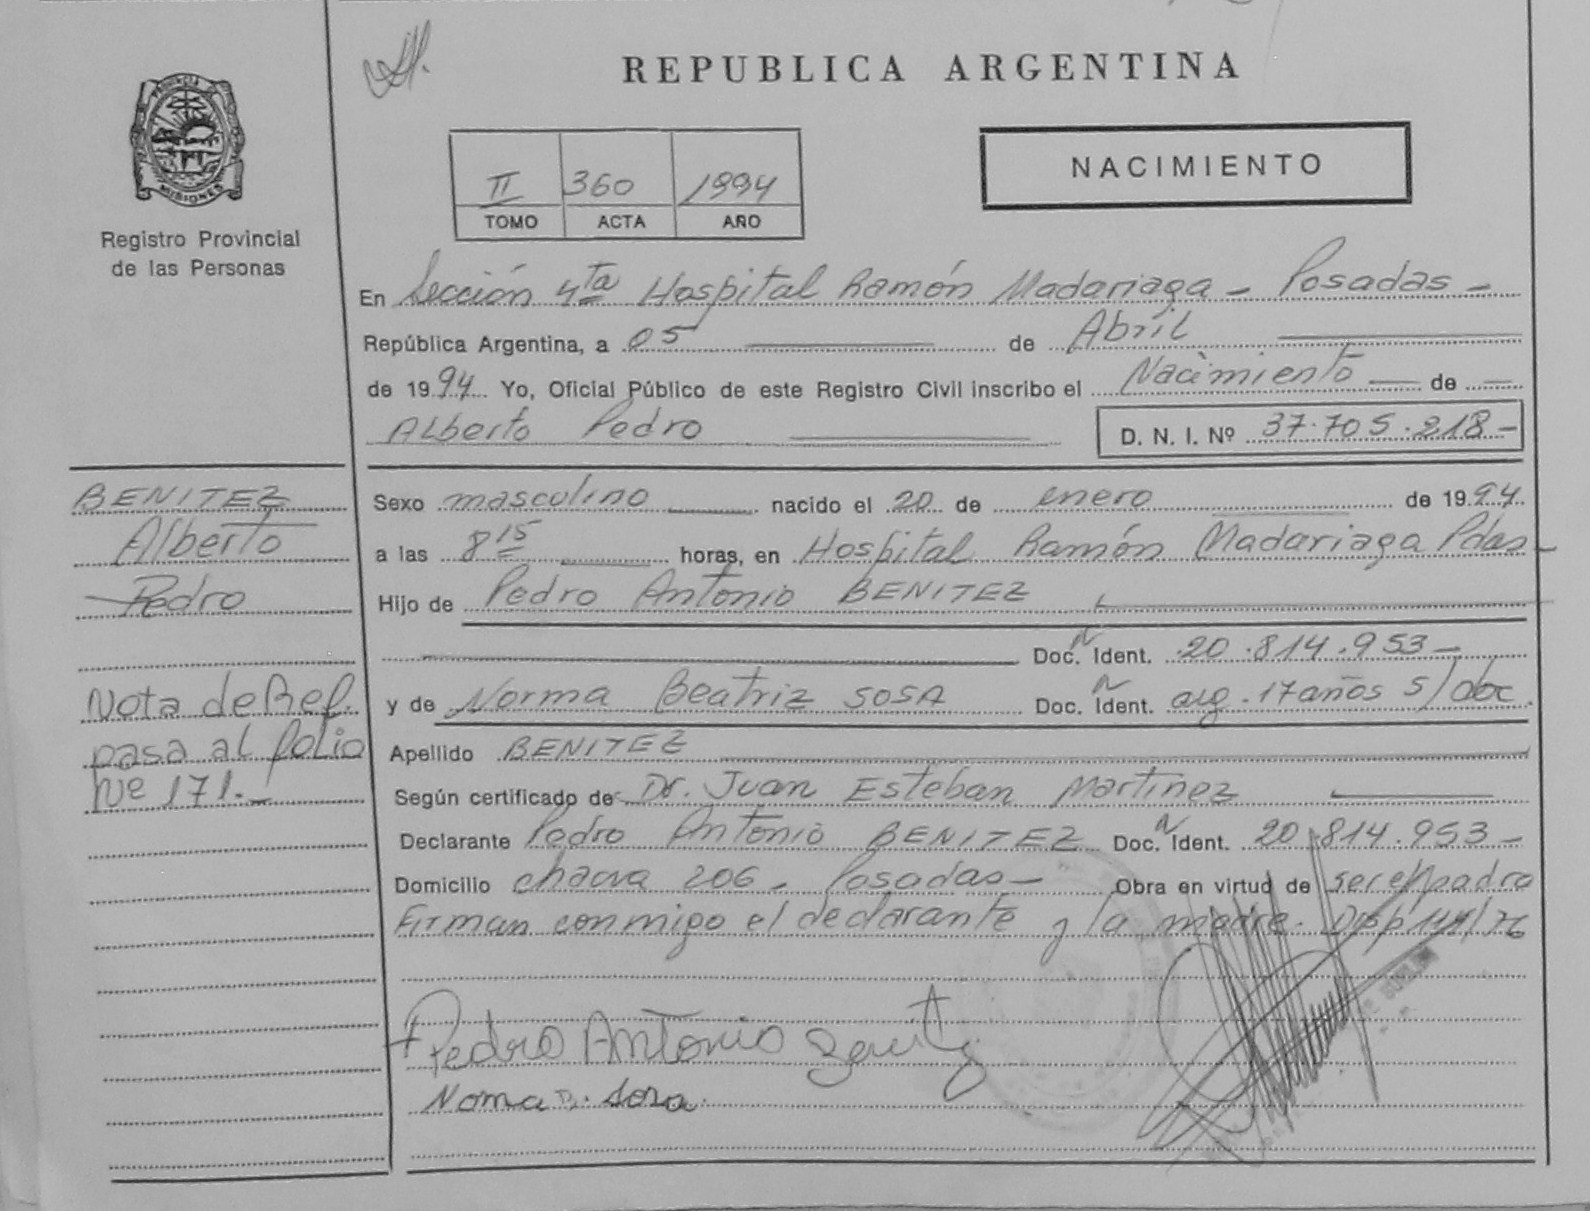 REPUBLICA ARGENTINA
MISIONES
Registro Provincial
de las Personas
II 360 1994
TOMO ACTA AÑO
NACIMIENTO
En Sección 4ta Hospital Ramón Madariaga - Posadas -
República Argentina, a 05 de Abril
de 1994 Yo, Oficial Público de este Registro Civil inscribo el Nacimiento de
Alberto Pedro D. N. I. Nº 37.705.218-
BENITEZ
Alberto
Pedro
Nota de Ref.
pasa al folio
Nº 171.-
Sexo masculino nacido el 20 de enero de 1994
a las 8 15 horas, en Hospital Ramón Madariaga Pdas-
Hijo de Pedro Antonio BENITEZ
Doc. Ident. 20.814.953-
y de Norma Beatriz SOSA Doc. Ident. arg. 17 años s/doc.
Apellido BENITEZ
Según certificado de Dr. Juan Esteban Martinez
Declarante Pedro Antonio BENITEZ Doc. Ident. 20.814.953-
Domicilio 206 - Posadas - Obra en virtud de ser el padre
Firman conmigo el declarante y la madre. Disp
Pedro Antonio
Noma B. Sosa